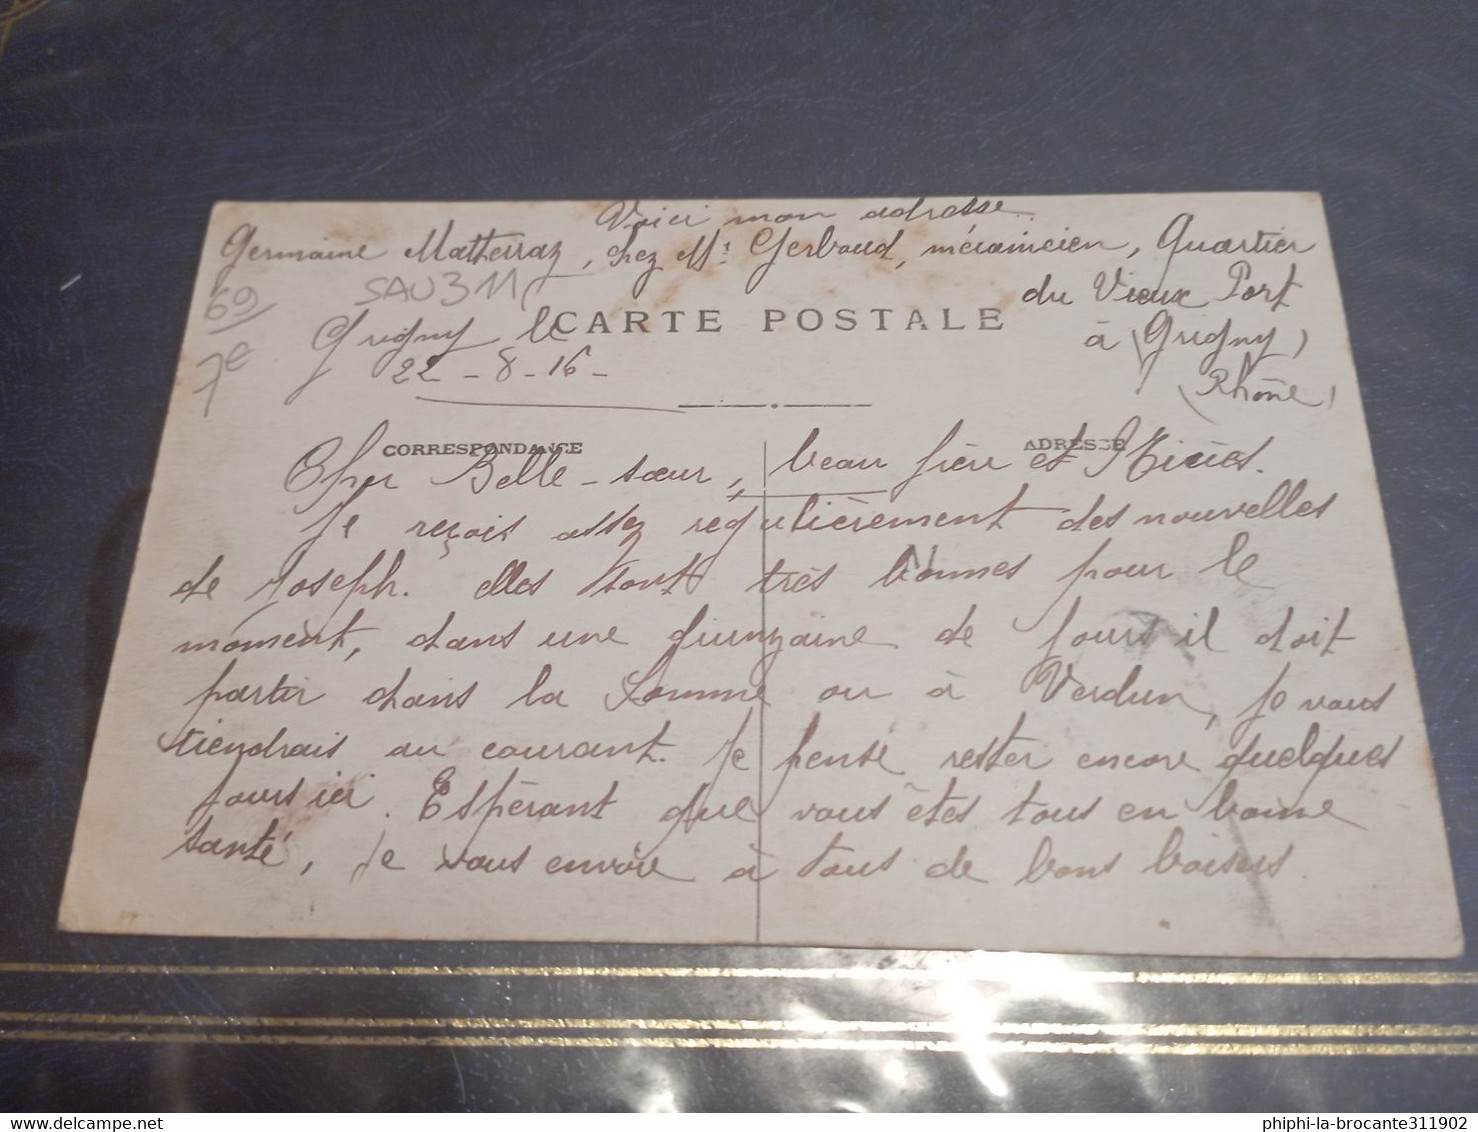 Voici mon adresse.
Germaine Matherraz, chez Mr. Gerboud, mécanicien, Quartier
du Vieux Port
à Grigny
(Rhône)
69
7e
SAU311
Grigny le
22 - 8 - 16 -
CARTE POSTALE
CORRESPONDANCE
ADRESSE
Cher Belle-sœur, beau frère et Nièces.
Je reçois assez regulièrement des nouvelles
de Joseph. elles sont très bonnes pour le
moment, dans une quinzaine de jours il doit
partir dans la Somme ou à Verdun, je vous
tiendrais au courant. Je pense rester encore quelques
jours ici. Espérant que vous êtes tous en bonne
santé, je vous envoie à tous de bons baisers.
phiphi-la-brocante311902